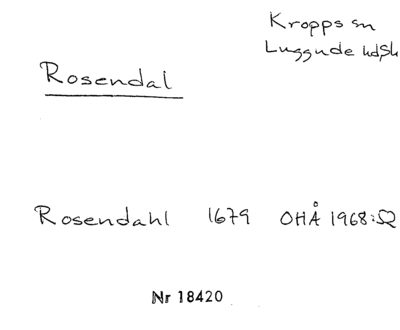 Kropps sn
Luggude hd Sk
Rosendal
Rosendahl 1679 OHÅ 1968:52
Nr 18420